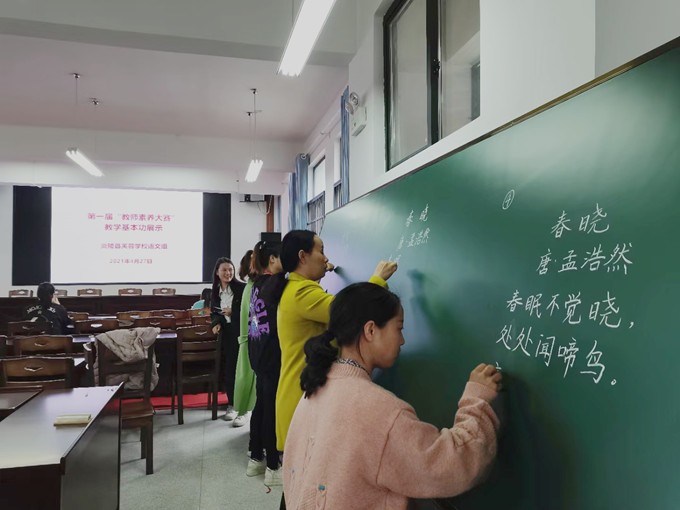 第一届“教师素养大赛”
教学基本功展示
学校语文组
2021年4月27日
春晓
孟浩然
④
春晓
唐·孟浩然
春眠不觉晓，
处处闻啼鸟。